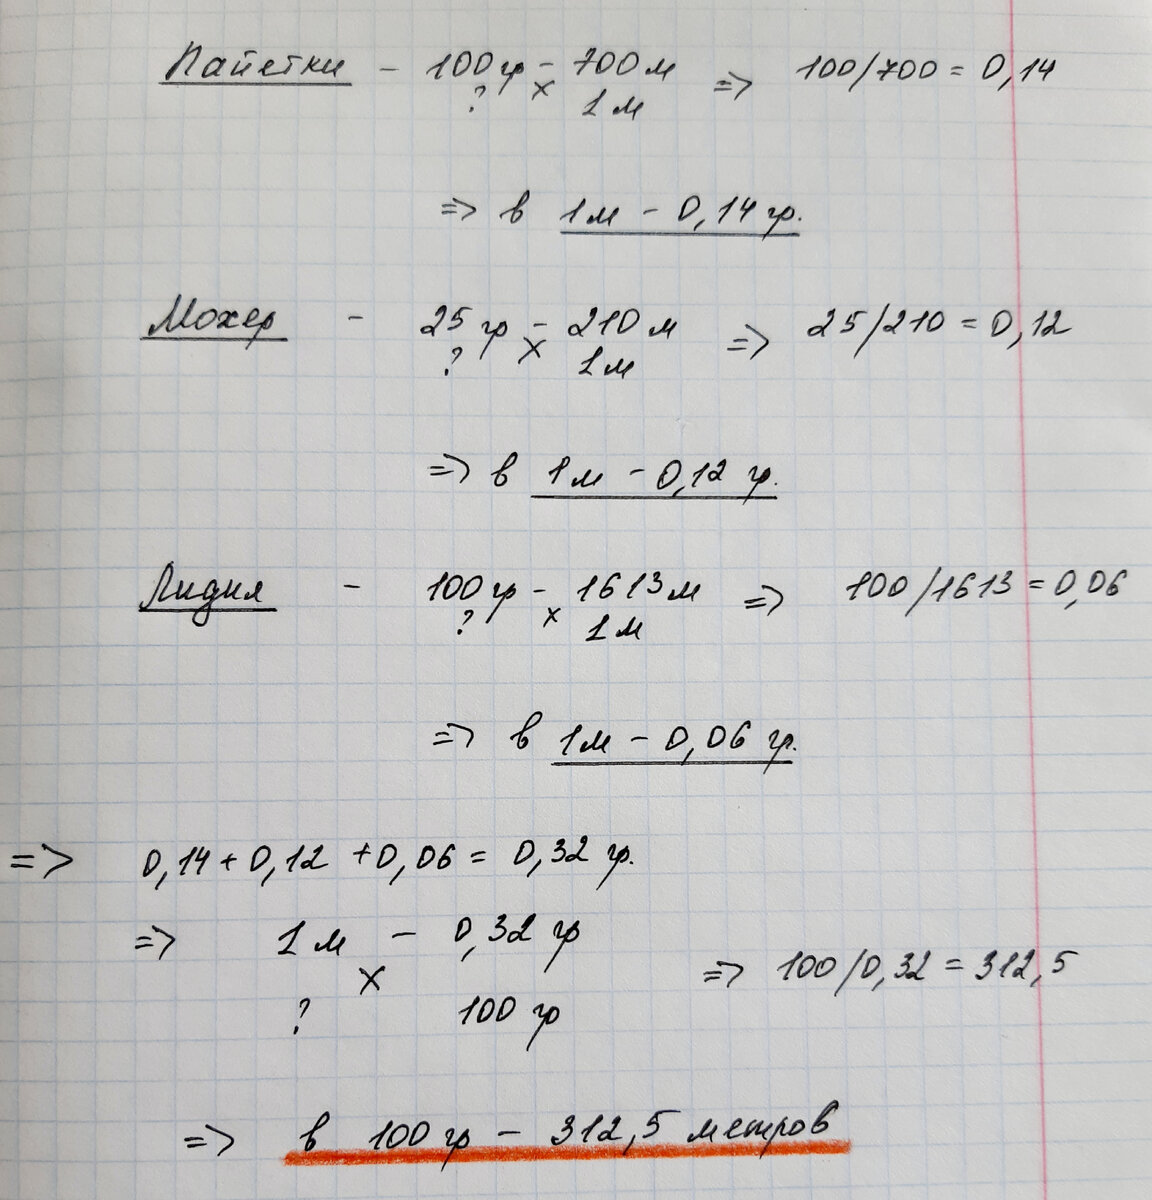 Пайетки - 100 гр - 700 м => 100/700 = 0,14
? x 1 м
=> в 1 м - 0,14 гр.
Мохер - 25 гр - 210 м => 25/210 = 0,12
? x 1 м
=> в 1 м - 0,12 гр.
Лидия - 100 гр - 1613 м => 100/1613 = 0,06
? x 1 м
=> в 1 м - 0,06 гр.
=> 0,14 + 0,12 + 0,06 = 0,32 гр.
=> 1 м - 0,32 гр
x => 100/0,32 = 312,5
? 100 гр
=> в 100 гр - 312,5 метров